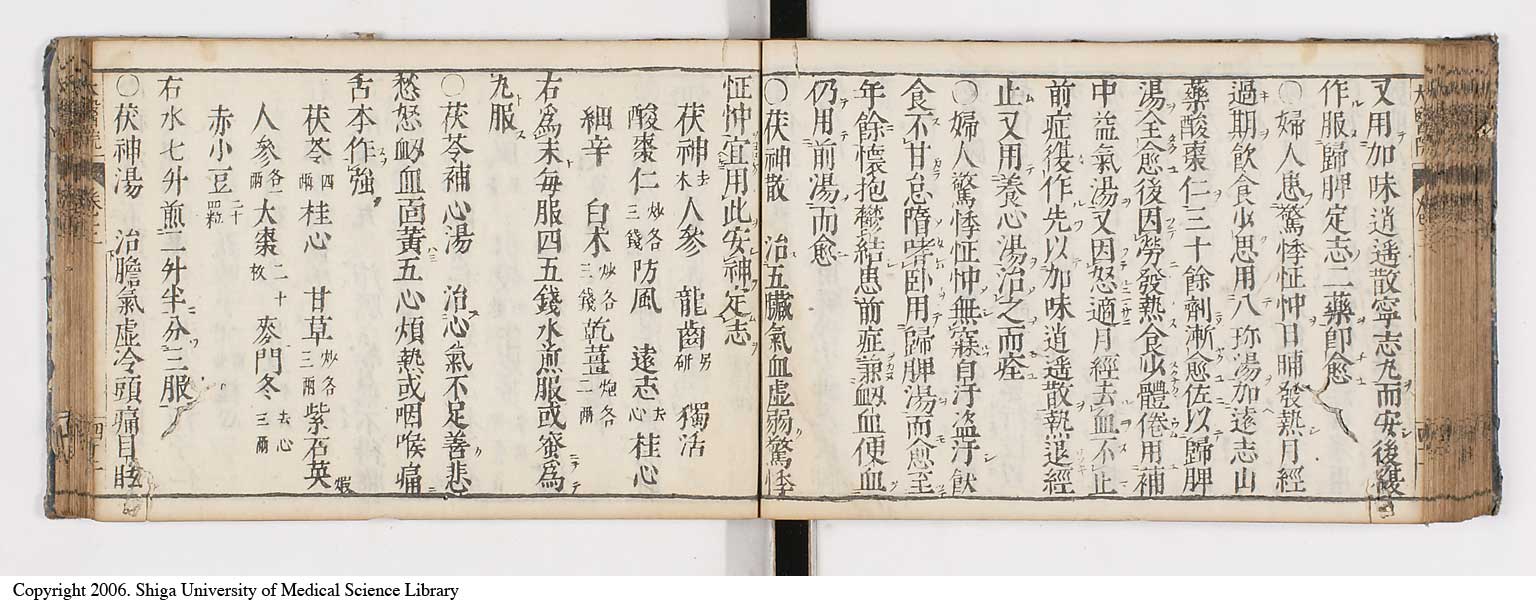 又用加味逍遥散寧志丸而安後復
作服歸脾定志二藥即愈
○婦人患驚悸怔忡日晡發熱月經
過期飲食少思用八珎湯加遠志山
藥酸棗仁三十餘劑漸愈佐以歸脾
湯全愈後因勞發熱食少體倦用補
中益氣湯又因怒適月經去血不止
前症復作先以加味逍遥散熱退經
止又用養心湯治之而痊
○婦人驚悸怔忡無寐自汗盗汗飲
食不甘怠隋嗜卧用歸脾湯而愈至
年餘懷抱鬱結患前症兼衂血便血
仍用前湯而愈
○茯神散 治五臓氣血虚弱驚悸
怔忡宜用此安神定志
茯神去木 人參 龍齒另研 獨活
酸棗仁炒各三錢 防風 遠志去心 桂心
細辛 白朮炒各三錢 乾薑炮各二兩
右爲末毎服四五錢水煎服或蜜爲
丸服
○茯苓補心湯 治心氣不足善悲
愁怒衂血面黄五心煩熱或咽喉痛
舌本作強
茯苓四兩 桂心 甘草炒各三兩 紫石英煆
人參各一兩 大棗二十枚 麥門冬去心三兩
赤小豆二十四粒
右水七升煎二升半分三服
○茯神湯 治膽氣虚冷頭痛目眩
Copyright 2006. Shiga University of Medical Science Library